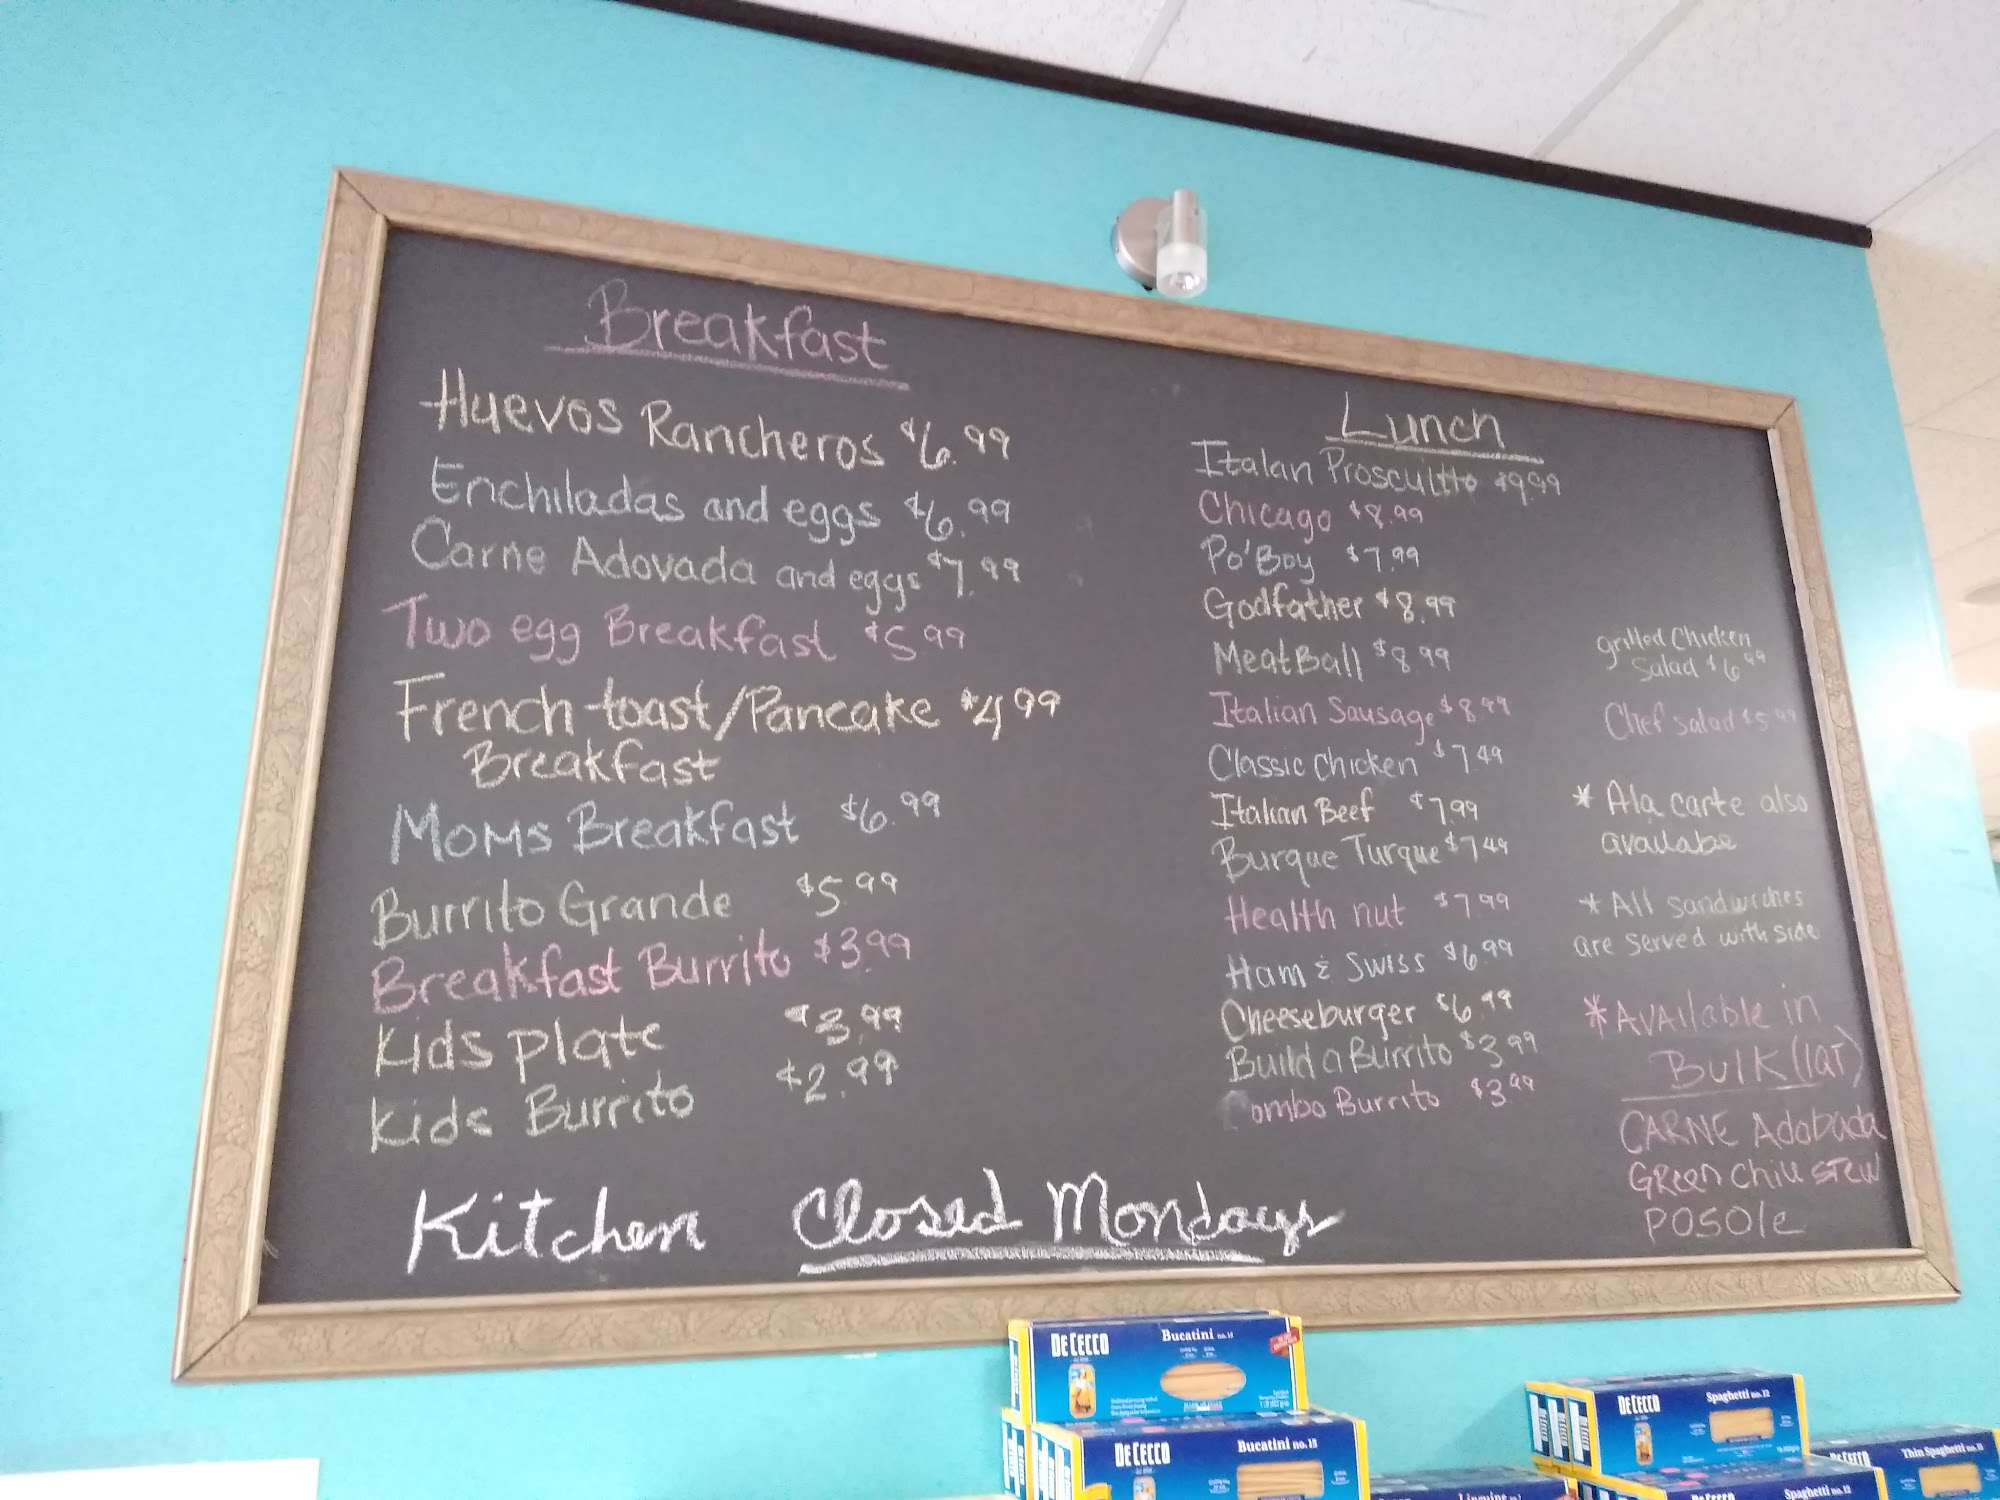 Breakfast
Huevos Rancheros $6.99
Enchiladas and eggs $6.99
Carne Adovada and eggs $7.99
Two egg Breakfast $5.99
French toast/Pancake $4.99
Breakfast
Moms Breakfast $6.99
Burrito Grande $5.99
Breakfast Burrito $3.99
Kids plate $3.99
Kids Burrito $2.99
Lunch
Italan Proscuitto $9.99
Chicago $8.99
Po'Boy $7.99
Godfather $8.99
MeatBall $8.99
Italian Sausage $8.99
Classic Chicken $7.49
Italian Beef $7.99
Burque Turque $7.49
Health nut $7.99
Ham & Swiss $6.99
Cheeseburger $6.99
Build a Burrito $3.99
Combo Burrito $3.99
grilled Chicken
Salad $6.99
Chef salad $5.99
* Ala carte also
availabe
* All sandwiches
are served with side
*Available in
Bulk (lat)
CARNE Adobada
Green Chili Stew
POSOle
Kitchen Closed Mondays
DE CECCO Bucatini no. 15
DE CECCO Bucatini no. 15
DE CECCO Spaghetti no. 12
DE CECCO Thin Spaghetti
Linguine
DE CECCO Spaghetti no. 12